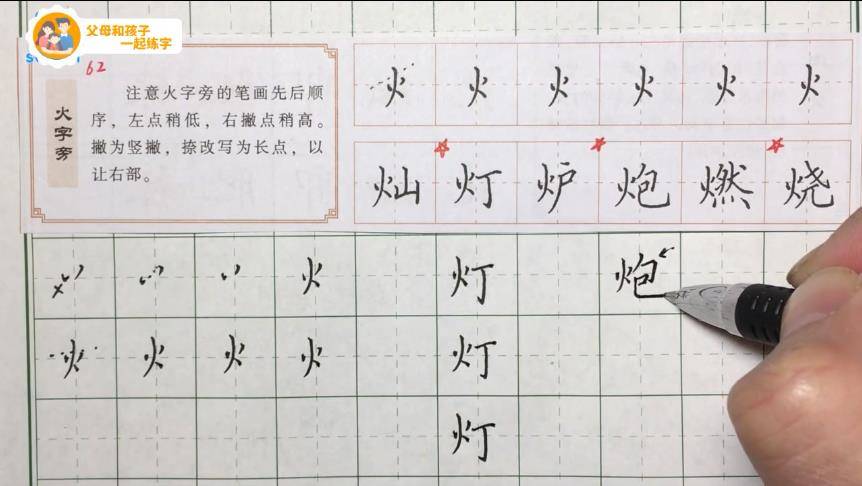 父母和孩子
一起练字
62
火字旁
注意火字旁的笔画先后顺
序，左点稍低，右撇点稍高。
撇为竖撇，捺改写为长点，以
让右部。
火 火 火 火 火 火
灿 灯 炉 炮 燃 烧
火 灯 炮
火 火 火 火 灯
灯